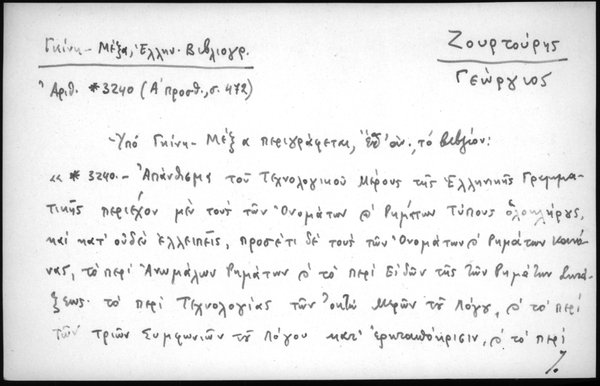 Γκίνη-Μέξα, Ἑλλην. Βιβλιογρ.
Ζουρτούρης
Γεώργιος
Ἀριθ. *3240 (Α' προσθ., σ. 472)
Ὑπό Γκίνη-Μέξα περιγράφεται, , τό βιβλίον:
«*3240.- Ἀπάνθισμα τοῦ Τεχνολογικοῦ Μέρους τῆς Ἑλληνικῆς Γραμμα-
τικῆς περιέχον μὲν τοὺς τῶν Ὀνομάτων & Ρημάτων Τύπους ὁλοκλήρους,
καὶ κατ' οὐδὲν ἐλλειπεῖς, προσέτι δὲ τοὺς τῶν Ὀνομάτων & Ρημάτων Κανό-
νας, τὸ περὶ Ἀνωμάλων Ρημάτων & τὸ περὶ Εἰδῶν τῆς τῶν Ρημάτων Συντά-
ξεως· τὸ περὶ Τεχνολογίας τῶν ὀκτὼ Μερῶν τοῦ Λόγου, & τὸ περὶ
τῶν τριῶν Συμφωνιῶν τοῦ Λόγου κατ' ἐρωταπόκρισιν, & τὸ περὶ
./.